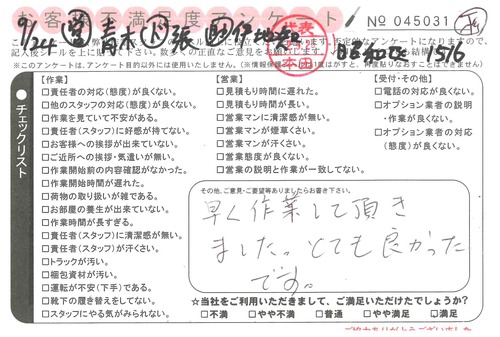 お客様不満足度アンケート
No 045031
9/24 青木 張 伊地知
1516
※このアンケートは、アンケート目的以外には使用いたしません。
チェックリスト
【作業】
□責任者の対応(態度)が良くない。
□他のスタッフの対応(態度)が良くない。
□作業を見ていて不安がある。
□責任者(スタッフ)に好感が持てない。
□お客様への挨拶が出来ていない。
□ご近所への挨拶・気遣いが無い。
□作業開始前の内容確認がなかった。
□作業開始時間が遅れた。
□荷物の取り扱いが雑である。
□お部屋の養生が出来ていない。
□作業時間が長すぎる。
□責任者(スタッフ)に清潔感が無い。
□責任者(スタッフ)が汗くさい。
□トラックが汚い。
□梱包資材が汚い。
□運転が不安(下手)である。
□靴下の履き替えをしてない。
□スタッフにやる気がみられない。
【営業】
□見積もり時間に遅れた。
□見積もり時間が長い。
□営業マンに清潔感が無い。
□営業マンが煙草くさい。
□営業マンが汗くさい。
□営業態度が良くない。
□営業の説明と作業が一致してない。
【受付・その他】
□電話の対応が良くない。
□オプション業者の説明
・作業が良くない。
□オプション業者の対応
(態度)が良くない。
その他、ご意見・ご要望等ありましたらお書き下さい。
早く作業して頂き
ました。とても良かった
です。
☆当社をご利用いただきまして、ご満足いただけたでしょうか?
□不満 □やや不満 □普通 □やや満足 ☑満足
ご協力ありがとうございました